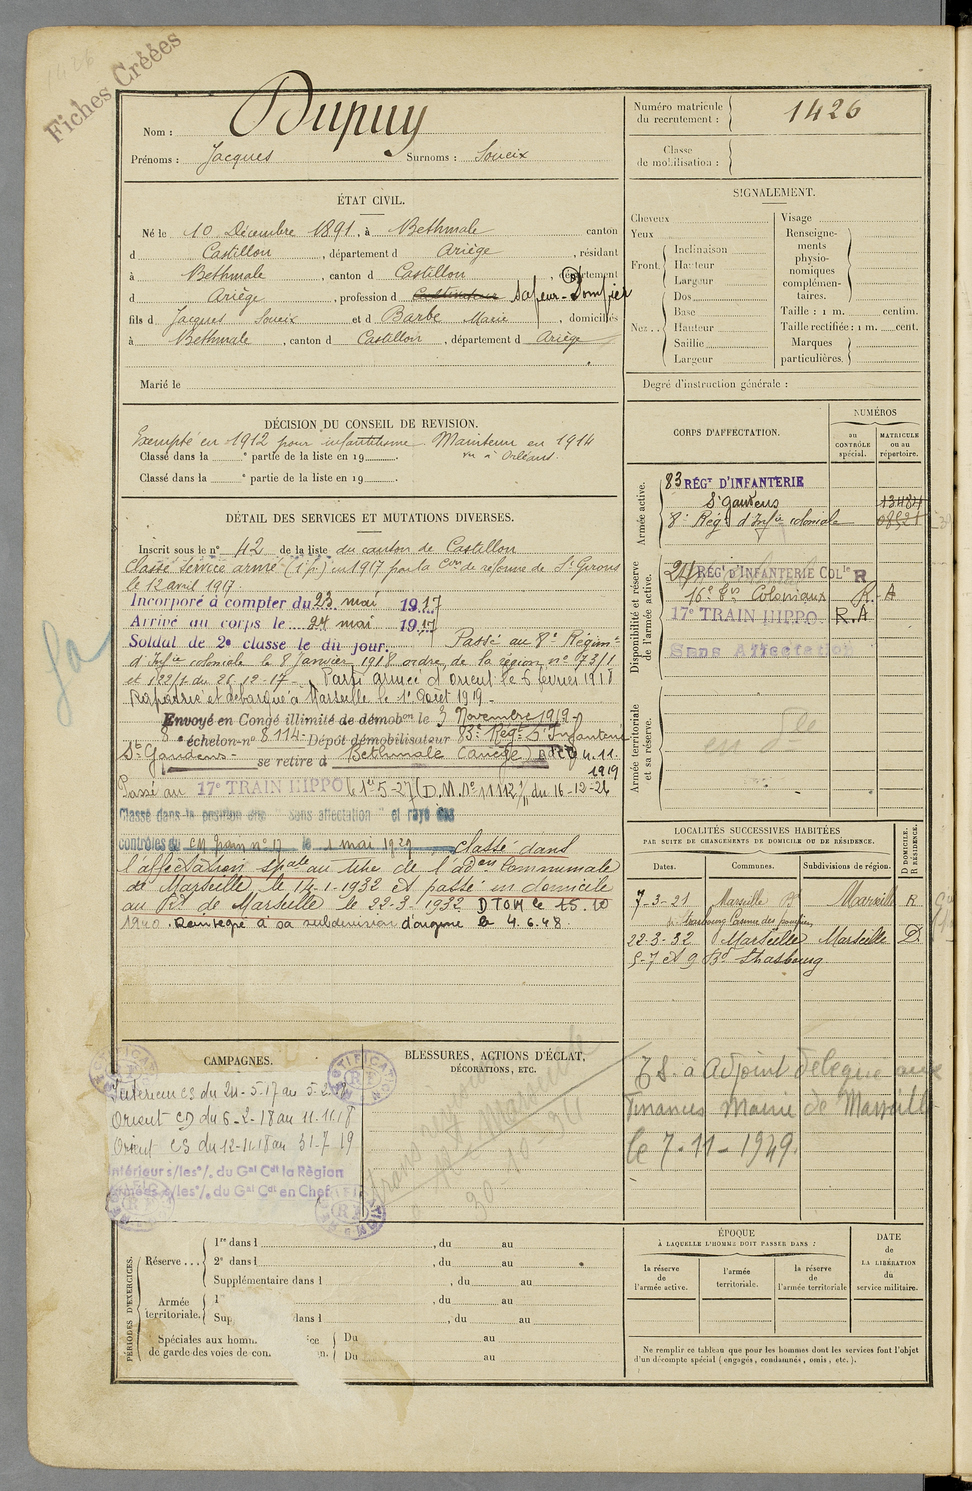 1426
Fiches Créées
Nom : Dupuy
Prénoms : Jacques Surnoms : Soueix
Numéro matricule du recrutement : 1426
Classe de mobilisation :
ÉTAT CIVIL.
Né le 10 Décembre 1891, à Bethmale canton
d Castillon, département d Ariège, résidant
à Bethmale, canton d Castillon, département
d Ariège, profession d Cultivateur Sapeur-Pompier
fils d Jacques Soueix et d Barbe Marie, domiciliés
à Bethmale, canton d Castillon, département d Ariège
Marié le
SIGNALEMENT.
Cheveux
Yeux
Front
Inclinaison
Hauteur
Largeur
Nez
Dos
Base
Hauteur
Saillie
Largeur
Visage
Renseignements physionomiques complémentaires.
Taille : 1 m. centim.
Taille rectifiée : 1 m. cent.
Marques particulières.
Degré d'instruction générale :
DÉCISION DU CONSEIL DE REVISION.
Exempté en 1912 pour infantilisme. Maintenu en 1914
Classé dans la e partie de la liste en 19 . vu à Orléans.
Classé dans la e partie de la liste en 19 .
DÉTAIL DES SERVICES ET MUTATIONS DIVERSES.
Inscrit sous le n° 42 de la liste du canton de Castillon
Classé Service armé (1e p.) en 1917 par la Con de réforme de St Girons
le 12 avril 1917.
Incorporé à compter du 23 mai 1917
Arrivé au corps le 24 mai 1917
Soldat de 2e classe le dit jour. Passé au 8e Régimt
d'Infie coloniale le 8 Janvier 1918 ordre de la région no 73/1
et 122/1 du 26-12-17. Parti armée d'Orient le 6 février 1918
Rapatrié et débarqué à Marseille le 1er Août 1919.
Envoyé en Congé illimité de démobon le 3 Novembre 1919
8e échelon n° 8114 Dépôt démobilisateur 83e Regt d'Infanterie
St Gaudens se retire à Bethmale (Ariège) 4.11.1919
Passé au 17e TRAIN HIPPO le 1er-5-27 (D.M. No 11112 du 16-12-26
Classé dans la position dite "Sans affectation" et rayé des
contrôles du CM Train n° 17 le 1 mai 1929 classé dans
l'affectation spale au titre de l'adon Communale
de Marseille, le 14-1-1932 et passé en domicile
au Bt de Marseille le 22-3-1932 DTOM le 15.10
1940. Réintégré à sa subdivision d'origine le 4.6.48.
CORPS D'AFFECTATION.
NUMÉROS
au CONTRÔLE spécial.
MATRICULE ou au répertoire.
Armée active.
83 RÉGt D'INFANTERIE
St Gaudens 13484
8e Régt d'Infie coloniale 08521
Disponibilité et réserve de l'armée active.
24 RÉGt D'INFANTERIE COLle R
16e Bon Coloniaux R.A
17e TRAIN HIPPO. R.A
Sans Affectation
Armée territoriale et sa réserve.
en Dle
LOCALITÉS SUCCESSIVES HABITÉES
PAR SUITE DE CHANGEMENTS DE DOMICILE OU DE RÉSIDENCE.
Dates.
Communes.
Subdivisions de région.
D DOMICILE. R RÉSIDENCE.
7-3-21 Marseille Bd Marseille R
de Strasbourg Caserne des pompiers
22-3-32 Marseille Marseille D
5-7 et 9 Bd Strasbourg
CAMPAGNES.
Intérieur CS du 24-5-17 au 5-2-18
Orient CD du 6-2-18 au 11.11.18
Orient CS du 12-11-18 au 31-7-19
Intérieur s/les o/. du Gal Cdt la Région
Armées s/les o/. du Gal Cdt en Chef
RECTIFICATION
BLESSURES, ACTIONS D'ÉCLAT,
DÉCORATIONS, ETC.
Marseille
30-10-
ES. à Adjoint délégué aux
Finances Mairie de Marseille
le 7-11-1949.
PÉRIODES D'EXERCICES.
Réserve
1re dans l , du au
2e dans l , du au
Supplémentaire dans l , du au
Armée territoriale.
1re , du au
Sup dans l , du au
Spéciales aux homm ice Du au
de garde des voies de con n. Du au
ÉPOQUE
À LAQUELLE L'HOMME DOIT PASSER DANS :
la réserve de l'armée active.
l'armée territoriale.
la réserve de l'armée territoriale
DATE de LA LIBÉRATION du service militaire.
Ne remplir ce tableau que pour les hommes dont les services font l'objet
d'un décompte spécial (engagés, condamnés, omis, etc.).